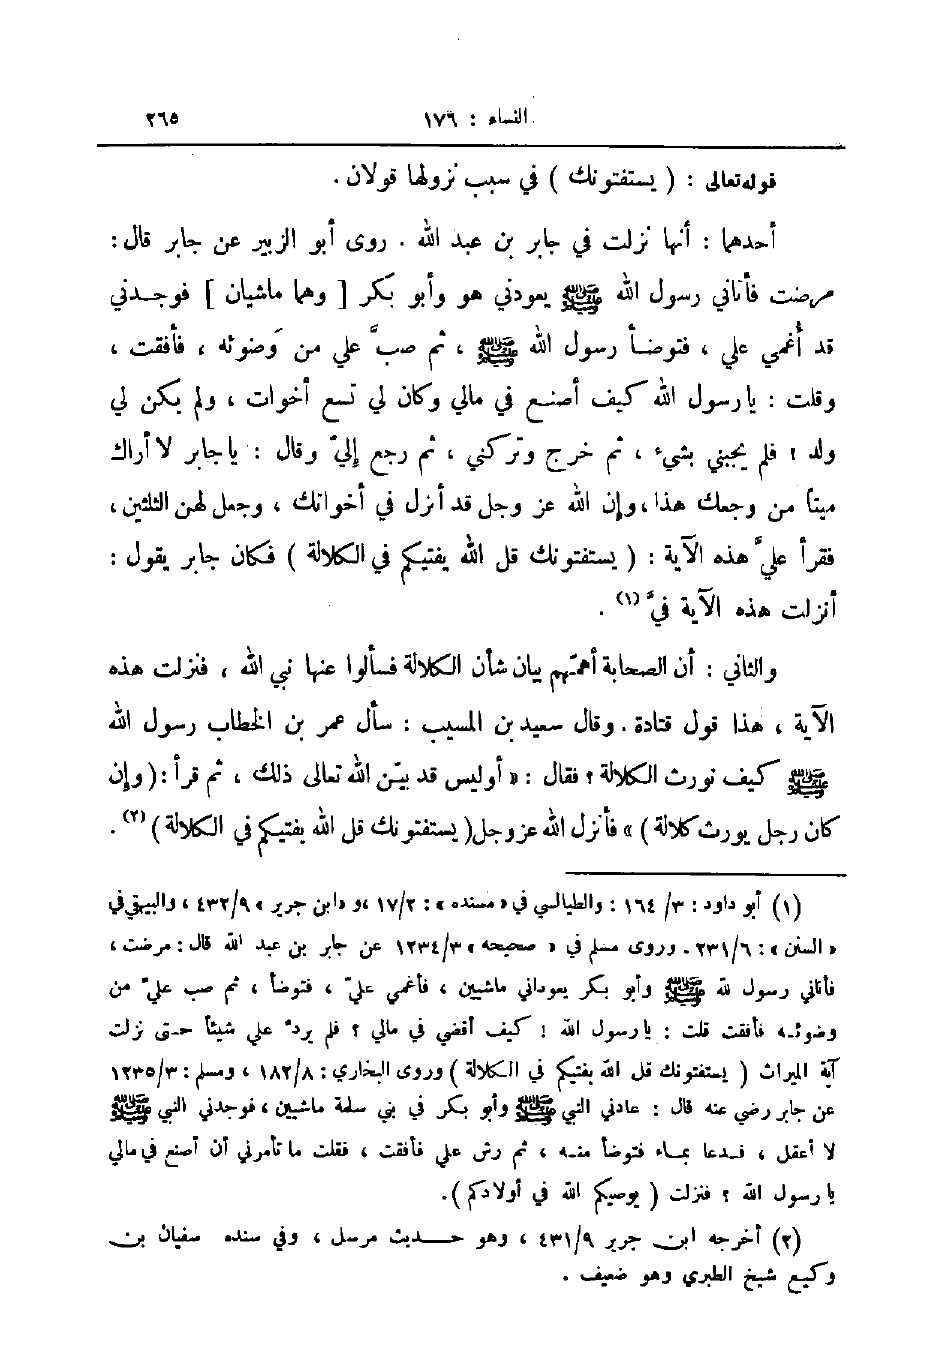 النساء : ١٧٦ ٢٦٥
قوله تعالى : ( يستفتونك ) في سبب نزولها قولان .
أحدهما : أنها نزلت في جابر بن عبد الله . روى أبو الزبير عن جابر قال :
مرضت فأتاني رسول الله ﷺ يعودني هو وأبو بكر [ وهما ماشيان ] فوجدني
قد أُغمي علي ، فتوضأ رسول الله ﷺ ، ثم صبَّ علي من وَضوئه ، فأفقت ،
وقلت : يا رسول الله كيف أصنع في مالي وكان لي تسع أخوات ، ولم يكن لي
ولد ؟ فلم يجبني بشيء ، ثم خرج وتركني ، ثم رجع إليّ وقال : يا جابر لا أراك
ميتاً من وجعك هذا ، وإن الله عز وجل قد أنزل في أخواتك ، وجعل لهن الثلثين ،
فقرأ عليَّ هذه الآية : ( يستفتونك قل الله يفتيكم في الكلالة ) فكان جابر يقول :
أنزلت هذه الآية فيَّ (١) .
والثاني : أن الصحابة أهمّهم بيان شأن الكلالة فسألوا عنها نبي الله ، فنزلت هذه
الآية ، هذا قول قتادة . وقال سعيد بن المسيب : سأل عمر بن الخطاب رسول الله
ﷺ كيف نورث الكلالة ؟ فقال : « أوليس قد بيّن الله تعالى ذلك ، ثم قرأ : ( وإن
كان رجل يورث كلالة ) » فأنزل الله عز وجل ( يستفتونك قل الله يفتيكم في الكلالة ) (٢) .
(١) أبو داود : ٣/ ١٦٤ : والطيالسي في « مسنده » : ١٧/٢ ، و « ابن جرير » ٤٣٢/٩ ، والبيهقي في
« السنن » : ٢٣١/٦ . وروى مسلم في « صحيحه » ١٢٣٤/٣ عن جابر بن عبد الله قال : مرضت ،
فأتاني رسول لله ﷺ وأبو بكر يعوداني ماشيين ، فأغمي عليّ ، فتوضأ ، ثم صب عليّ من
وضوئه فأفقت قلت : يا رسول الله ! كيف أقضي في مالي ؟ فلم يرد علي شيئاً حتى نزلت
آية الميراث ( يستفتونك قل الله يفتيكم في الكلالة ) وروى البخاري : ١٨٢/٨ ، ومسلم : ١٢٣٥/٣
عن جابر رضي عنه قال : عادني النبي ﷺ وأبو بكر في بني سلمة ماشيين ، فوجدني النبي ﷺ
لا أعقل ، فدعا بماء فتوضأ منه ، ثم رش علي فأفقت ، فقلت ما تأمرني أن أصنع في مالي
يا رسول الله ؟ فنزلت ( يوصيكم الله في أولادكم ) .
(٢) أخرجه ابن جرير ٤٣١/٩ ، وهو حديث مرسل ، وفي سنده سفيان بن
وكيع شيخ الطبري وهو ضعيف .